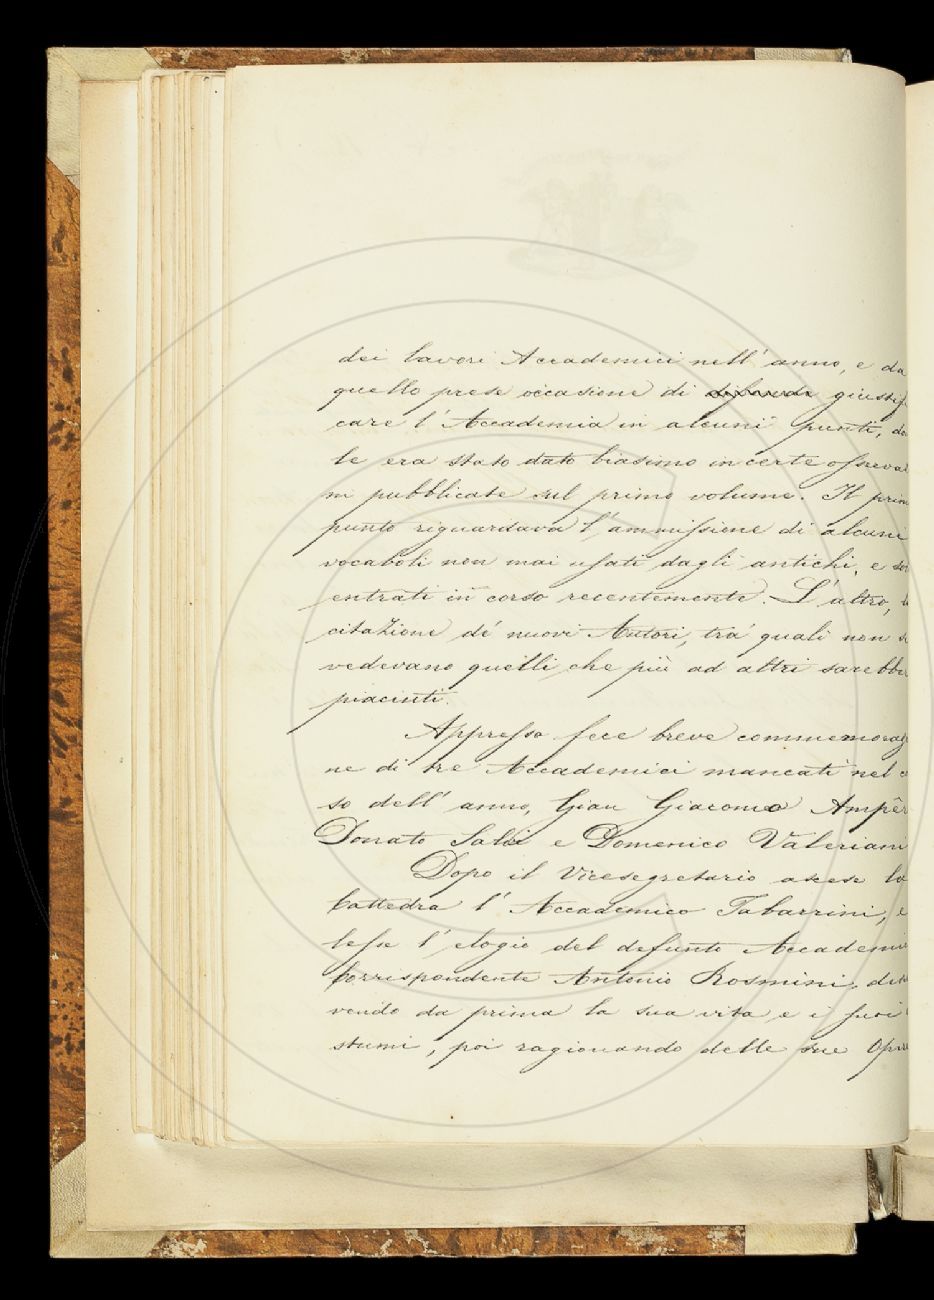 dei lavori Accademici nell'anno, e da
quello prese occasione di difende giustifi
care l'Accademia in alcuni punti, do
le era stato dato biasimo in certe osserva
ni pubblicate sul primo volume. Il prim
punto riguardava l'ammissione di alcuni
vocaboli non mai usati dagli antichi, e so
entrati in corso recentemente. L'altro, l
citazione de' nuovi Autori, tra' quali non s
vedevano quelli, che più ad altri sarebbe
piaciuti.
Appresso fece breve commemoraz
ne di tre Accademici mancati nel c
so dell'anno, Gian Giacomo Ampêr
Donato Salvi e Domenico Valeriani
Dopo il Vicesegretario ascese la
Cattedra l'Accademico Tabarrini, e
lesse l'elogio del defunto Accademi
Corrispondente Antonio Rosmini, di
vendo da prima la sua vita, e i suoi
stumi, poi ragionando delle sue Opre